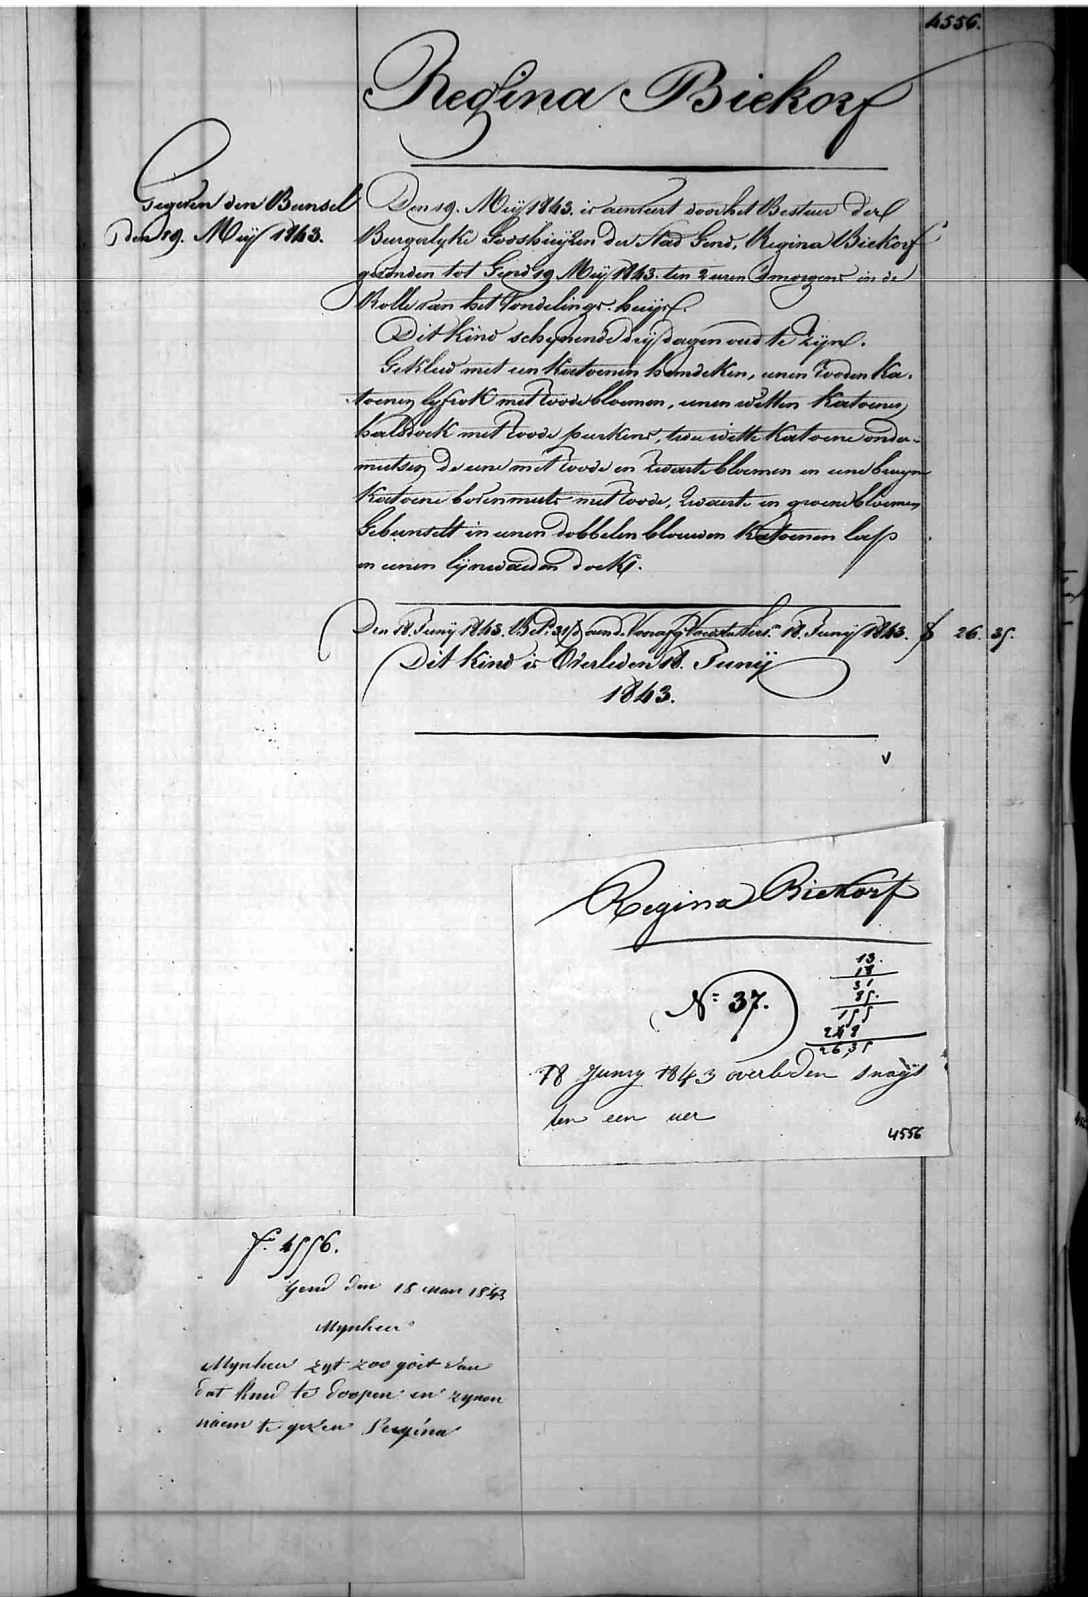 4556.
Regina Biekorf
Gegeven den Bunsel
den 19. Meij 1843.
Den 19. Meij 1843. is aenveert door het Bestuer der
Burgerlyke Godshuijzen der Stad Gend, Regina Biekorf
gevonden tot Gend 19 Meij 1843. ten 2 uren smorgens in de
Rolle van het Vondelings-huijs.
Dit kind schynende drij dagen oud te zijn.
Gekleed met een katoenen hemdeken, eenen rooden ka-
toenen lyfrok met roode bloemen, eenen witten katoenen
halsdoek met roode perkens, twee witte katoene onder-
mutsen de eene met roode en zwarte bloemen en eene bruijne
katoene bovenmuts met roode, zwarte en groene bloemen
Gebunselt in eenen dobbelen blauwen katoenen lap
en eenen lijnwaeden doek.
Den 18. Junij 1843. Bet. 31 d. aen de Voorafg 18. Junij 1843. f 26. 35.
Dit kind is Overleden 18. Junij
1843.
Regina Biekorf
N.º 37.
13.
18
31
85.
155
248
26,35
18 Juny 1843 overleden snags
ten een uer
4556
f.º 4556.
Gend den 18 mai 1843
Mynheer
Mynheer zyt zoo goet van
dat kind te doopen en zynen
naem te geven Regina